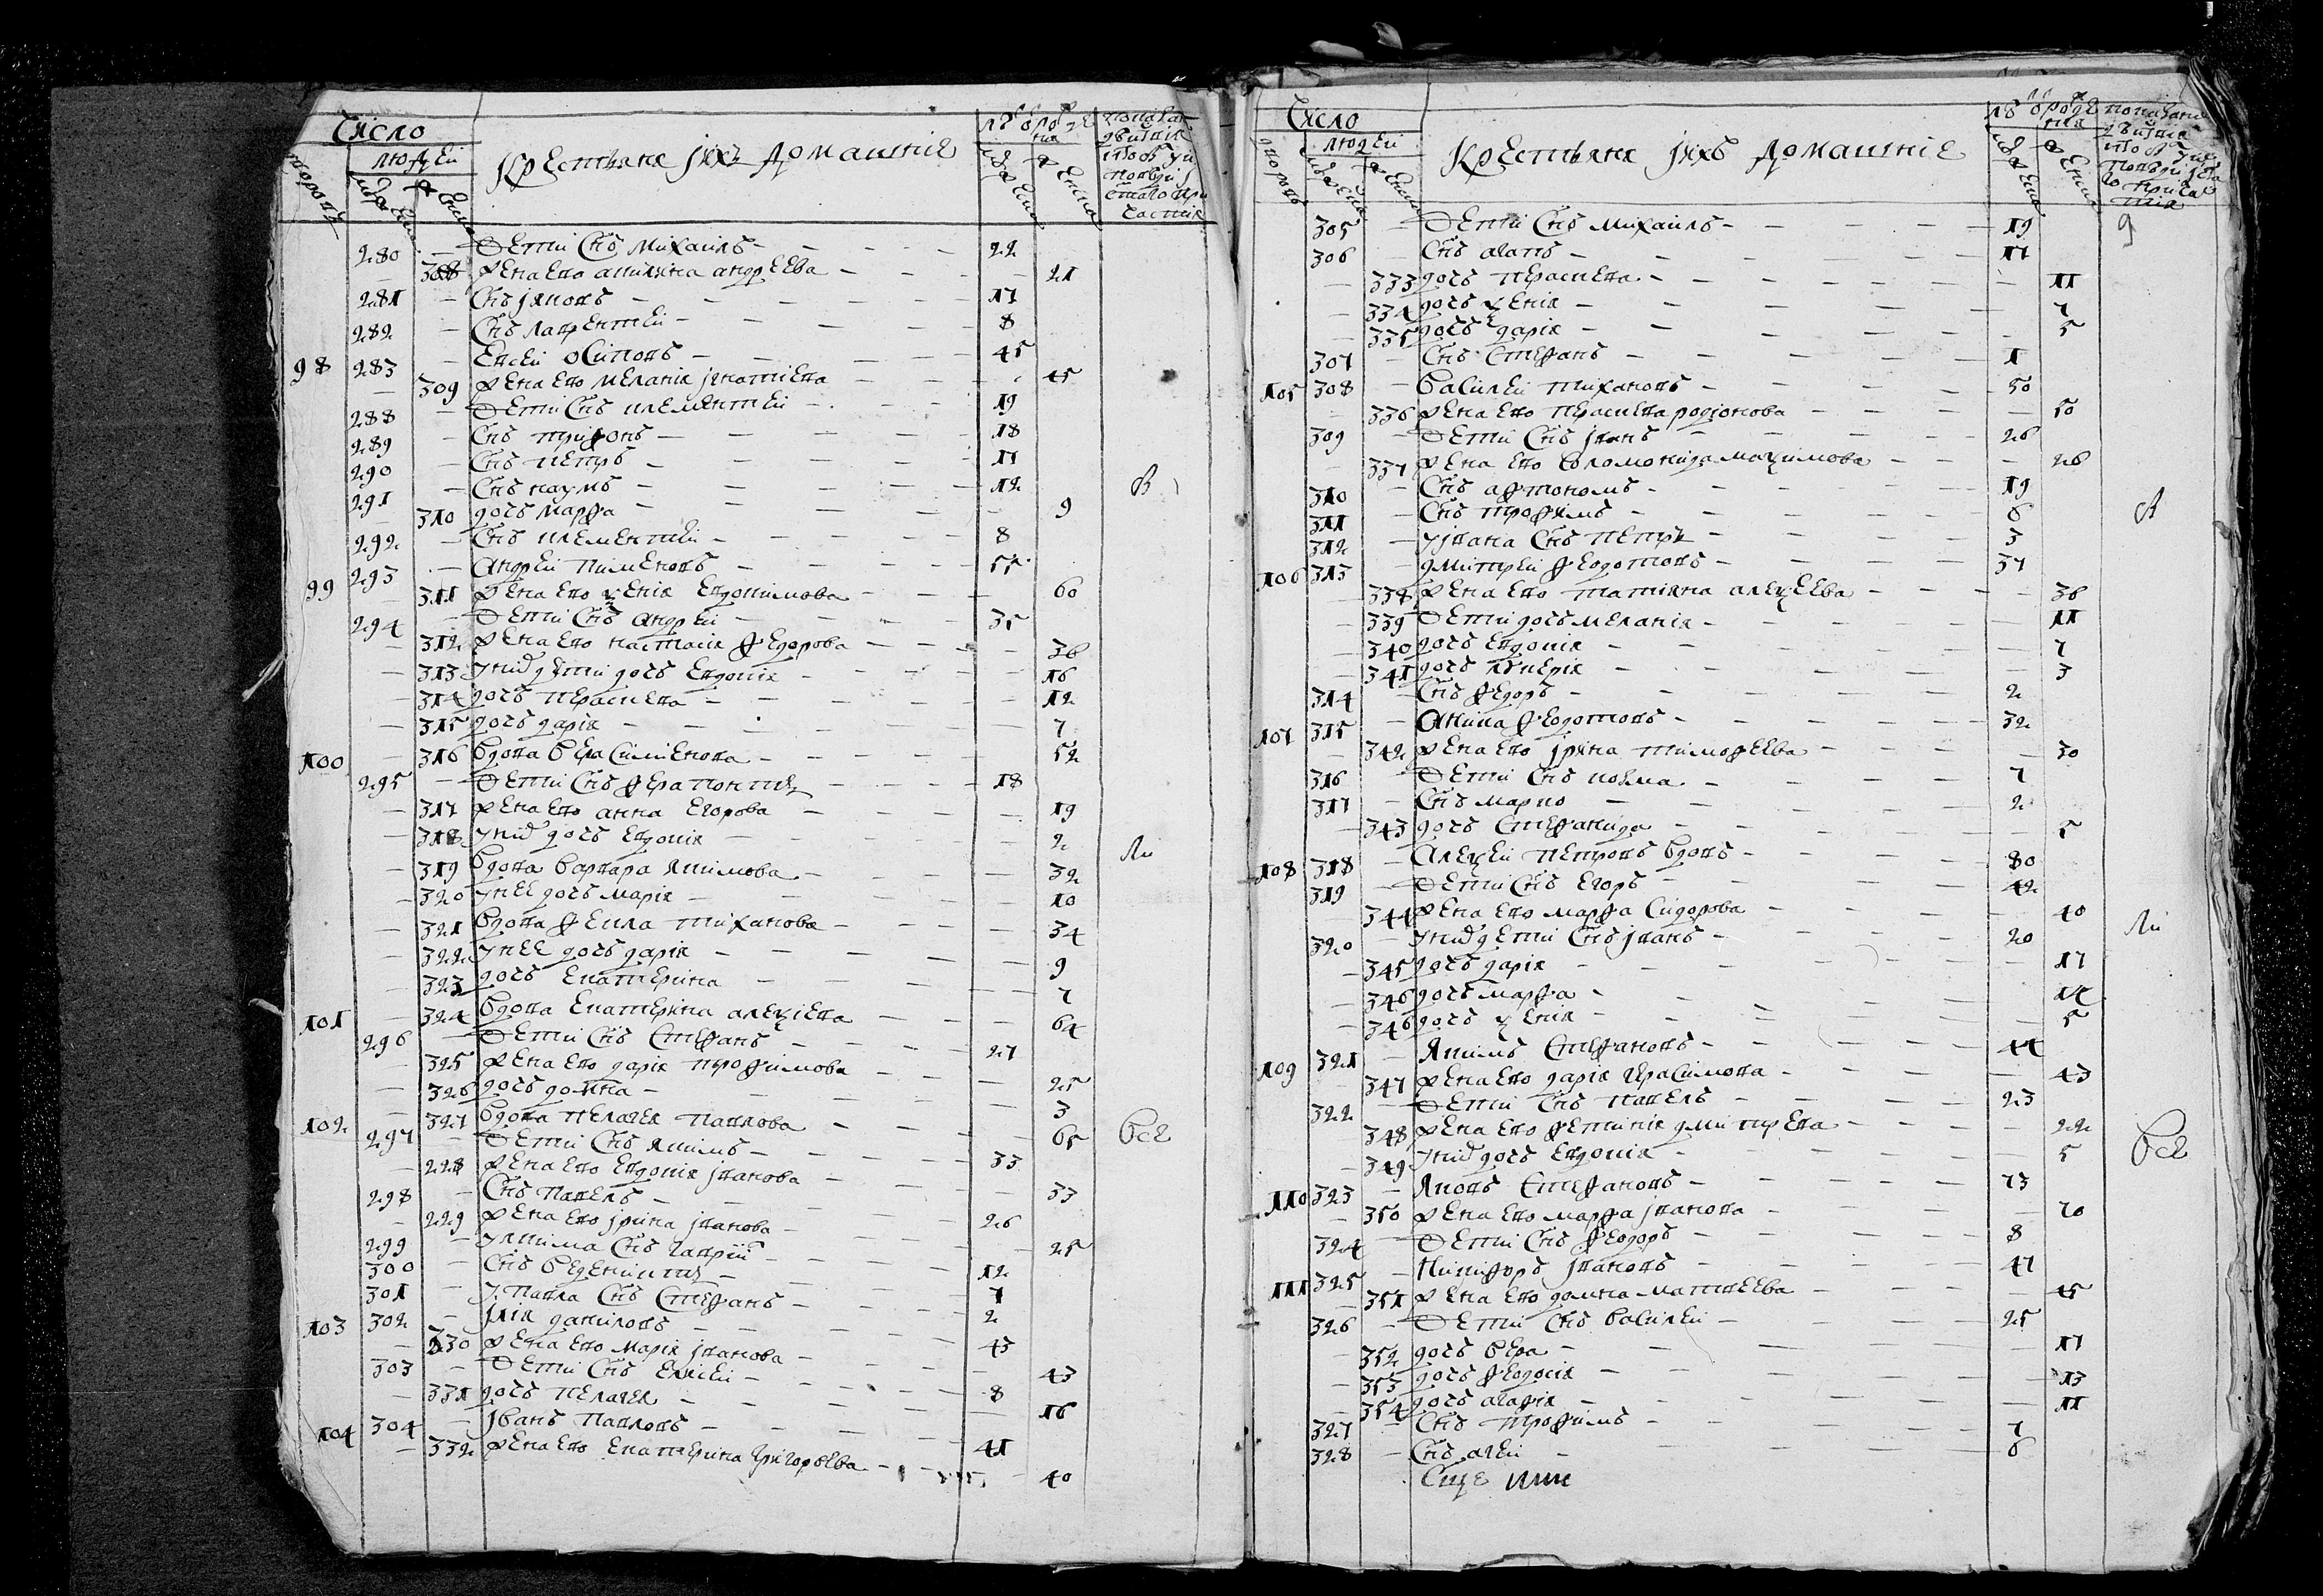 Число
людей
Крестьяня ихъ домашние
280 Дети Снъ Михаилъ 22
308 жена ево акилина андреева 21
281 Снъ яковъ 17
282 Снъ Лаврентеи 8
98 283 Евсеи Осиповъ 45
309 жена ево Мелания игнатиева 45
288 Дети Снъ климентеи 19
289 Снъ трифонъ 18
290 Снъ петръ 17
291 Снъ наумъ 12
310 дочь Марфа 9
292 Снъ климентеи 8
99 293 Андреи пименовъ 55
311 жена ево ксения Евдокимова 60
294 Дети Снъ андреи 35
312 жена ево настасия федорова 36
313 У нихъ дети дочь Евдокия 16
314 дочь параскева 12
315 дочь дария 7
100 316 Вдова Вера Симионова 52
295 Дети Снъ ферапонтъ 18
317 жена ево анна Егорова 19
318 У нихъ дочь Евдокия 2
319 Вдова Варвара Якимова 32
320 У нее дочь Мария 10
321 Вдова фекла тиханова 34
322 У нее дочь дария 9
323 дочь Екатерина 7
101 324 Вдова Екатерина алексиева 64
296 Дети Снъ Стефанъ 27
325 жена ево дария трофимова 25
326 дочь домна 3
102 327 Вдова пелагея павлова 65
Все
297 Дети Снъ Якимъ 33
228 жена ево Евдокия иванова 33
298 Снъ павелъ 26
229 жена ево ирина иванова 25
299 У якима Снъ гаврии 12
300 Снъ Веденихтъ 7
301 У павла Снъ Стефанъ 2
103 302 Илия даниловъ 43
330 жена ево Мария иванова 43
303 Дети Снъ Елисеи 8
331 дочь пелагея 16
104 304 Иванъ павловъ 41
332 жена ево Екатерина григорьева 40
Число
людей
Крестьяня ихъ домашние
305 Дети Снъ Михаилъ 19
306 Снъ агапъ 17
333 дочь параскева 11
334 дочь ксения 7
335 дочь дария 5
307 Снъ Стефанъ 1
105 308 Василеи тихановъ 50
336 жена ево параскева родионова 50
309 Дети Снъ иванъ 26
337 жена ево Соломонида максимова 26
310 Снъ афтономъ 19
311 Снъ трофимъ 6
312 У ивана Снъ петръ 3
106 313 дмитреи федотовъ 37
338 жена ево татияна алексеева 36
339 Дети дочь мелания 11
340 дочь Евдокия 7
341 дочь лукерия 3
314 Снъ федоръ 2
107 315 Аника федотовъ 32
342 жена ево ирина тимофеева 30
316 Дети Снъ козма 7
317 Снъ марко 2
343 дочь Стефанида 5
108 318 Алексеи петровъ Вдовъ 80
319 Дети Снъ Егоръ 42
344 жена ево марфа Сидорова 40
320 У нихъ дети Снъ иванъ 20
345 дочь дария 17
346 дочь марфа 14
346 дочь ксения 5
109 321 Якимъ Стефановъ 44
347 жена ево дария герасимова 43
322 Дети Снъ павелъ 23
348 жена ево фетиния дмитрева 22
349 У нихъ дочь Евдокия 5
Все
110 323 Яковъ Стефановъ 73
350 жена ево марфа иванова 70
324 Дети Снъ федоръ 8
111 325 Никифоръ ивановъ 47
351 жена ево домна матвеева 45
326 Дети Снъ Василеи 25
352 дочь Вера 17
353 дочь федосия 13
354 дочь агафия 11
327 Снъ трофимъ 7
328 Снъ агеи 6